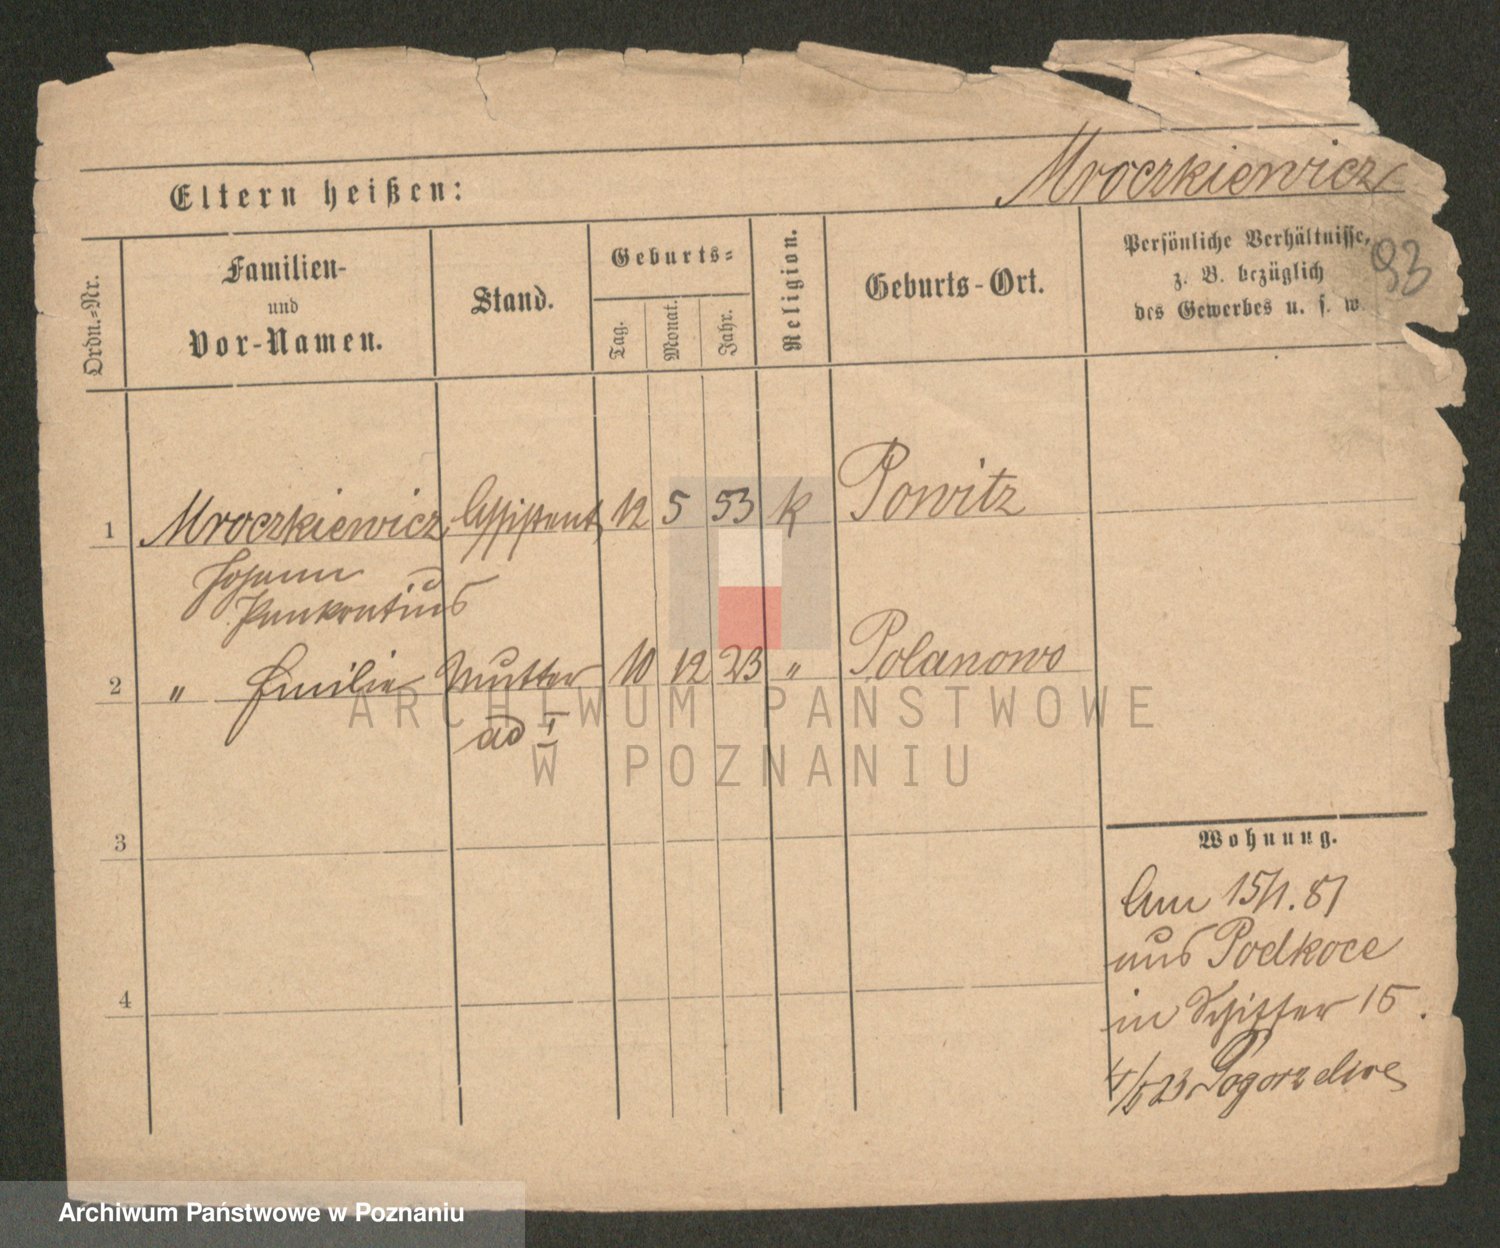 Mroczkiewicz
Eltern heißen:
93
Ordn.-Nr.
Familien-
und
Vor-Namen.
Stand.
Geburts-
Tag.
Monat.
Jahr.
Religion.
Geburts-Ort.
Persönliche Verhältnisse,
z. B. bezüglich
des Gewerbes u. s. w.
1 Mroczkiewicz Assistent 12 5 53 k Powitz
Johann
Pankratius
2 " Emilie Mutter 10 12 23 " Polanowo
ad I
3
4
Wohnung.
Am 15/1. 81
aus Podkoce
in Schiffer 15.
23 Pogorzelice
ARCHIWUM PAŃSTWOWE
W POZNANIU
Archiwum Państwowe w Poznaniu